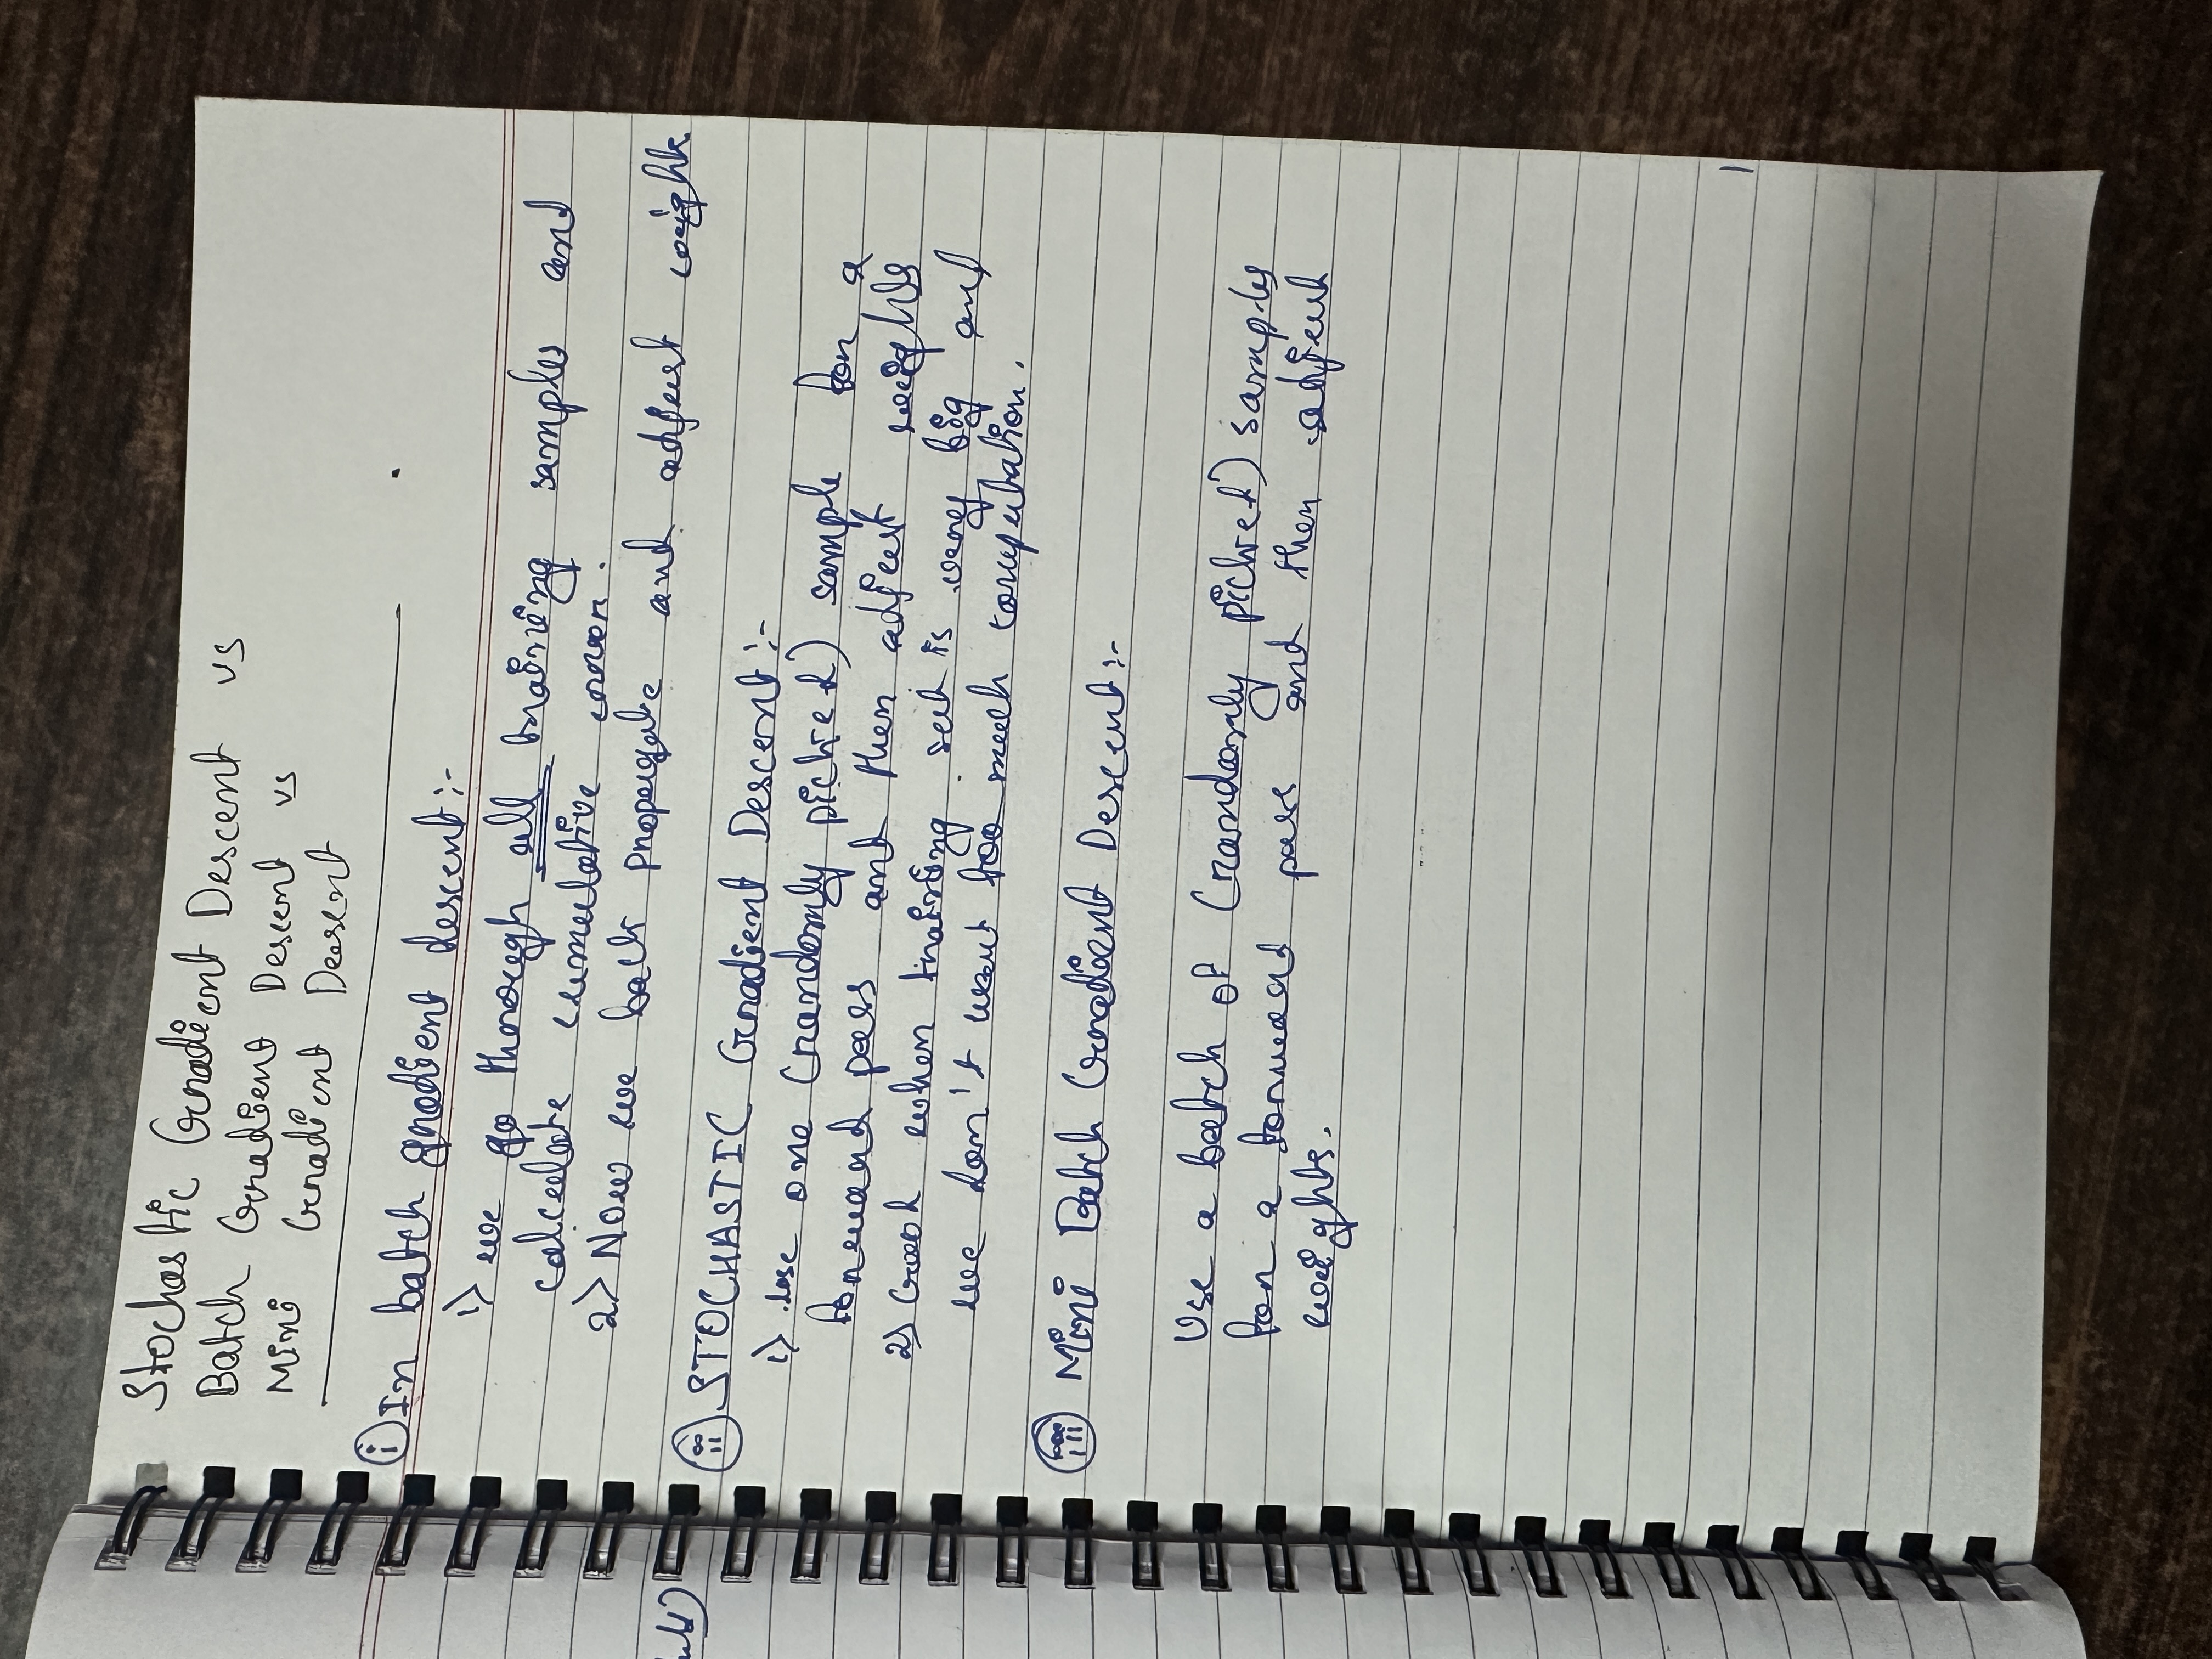 Stochastic Gradient Descent vs
Batch Gradient Descent vs
Mini Gradient Descent
(i) In batch gradient descent:-
1) we go thorough all training samples and
calculate cumulative error.
2) Now we back propagate and adjust weights
(ii) STOCHASTIC Gradient Descent:-
1) use one (randomly picked) sample for a
forward pass and then adjust weights
2) Good when training set is very big and
we don't want too much computation.
(iii) Mini Batch Gradient Descent:-
Use a batch of (randomly picked) samples
for a forward pass and then adjust
weights.